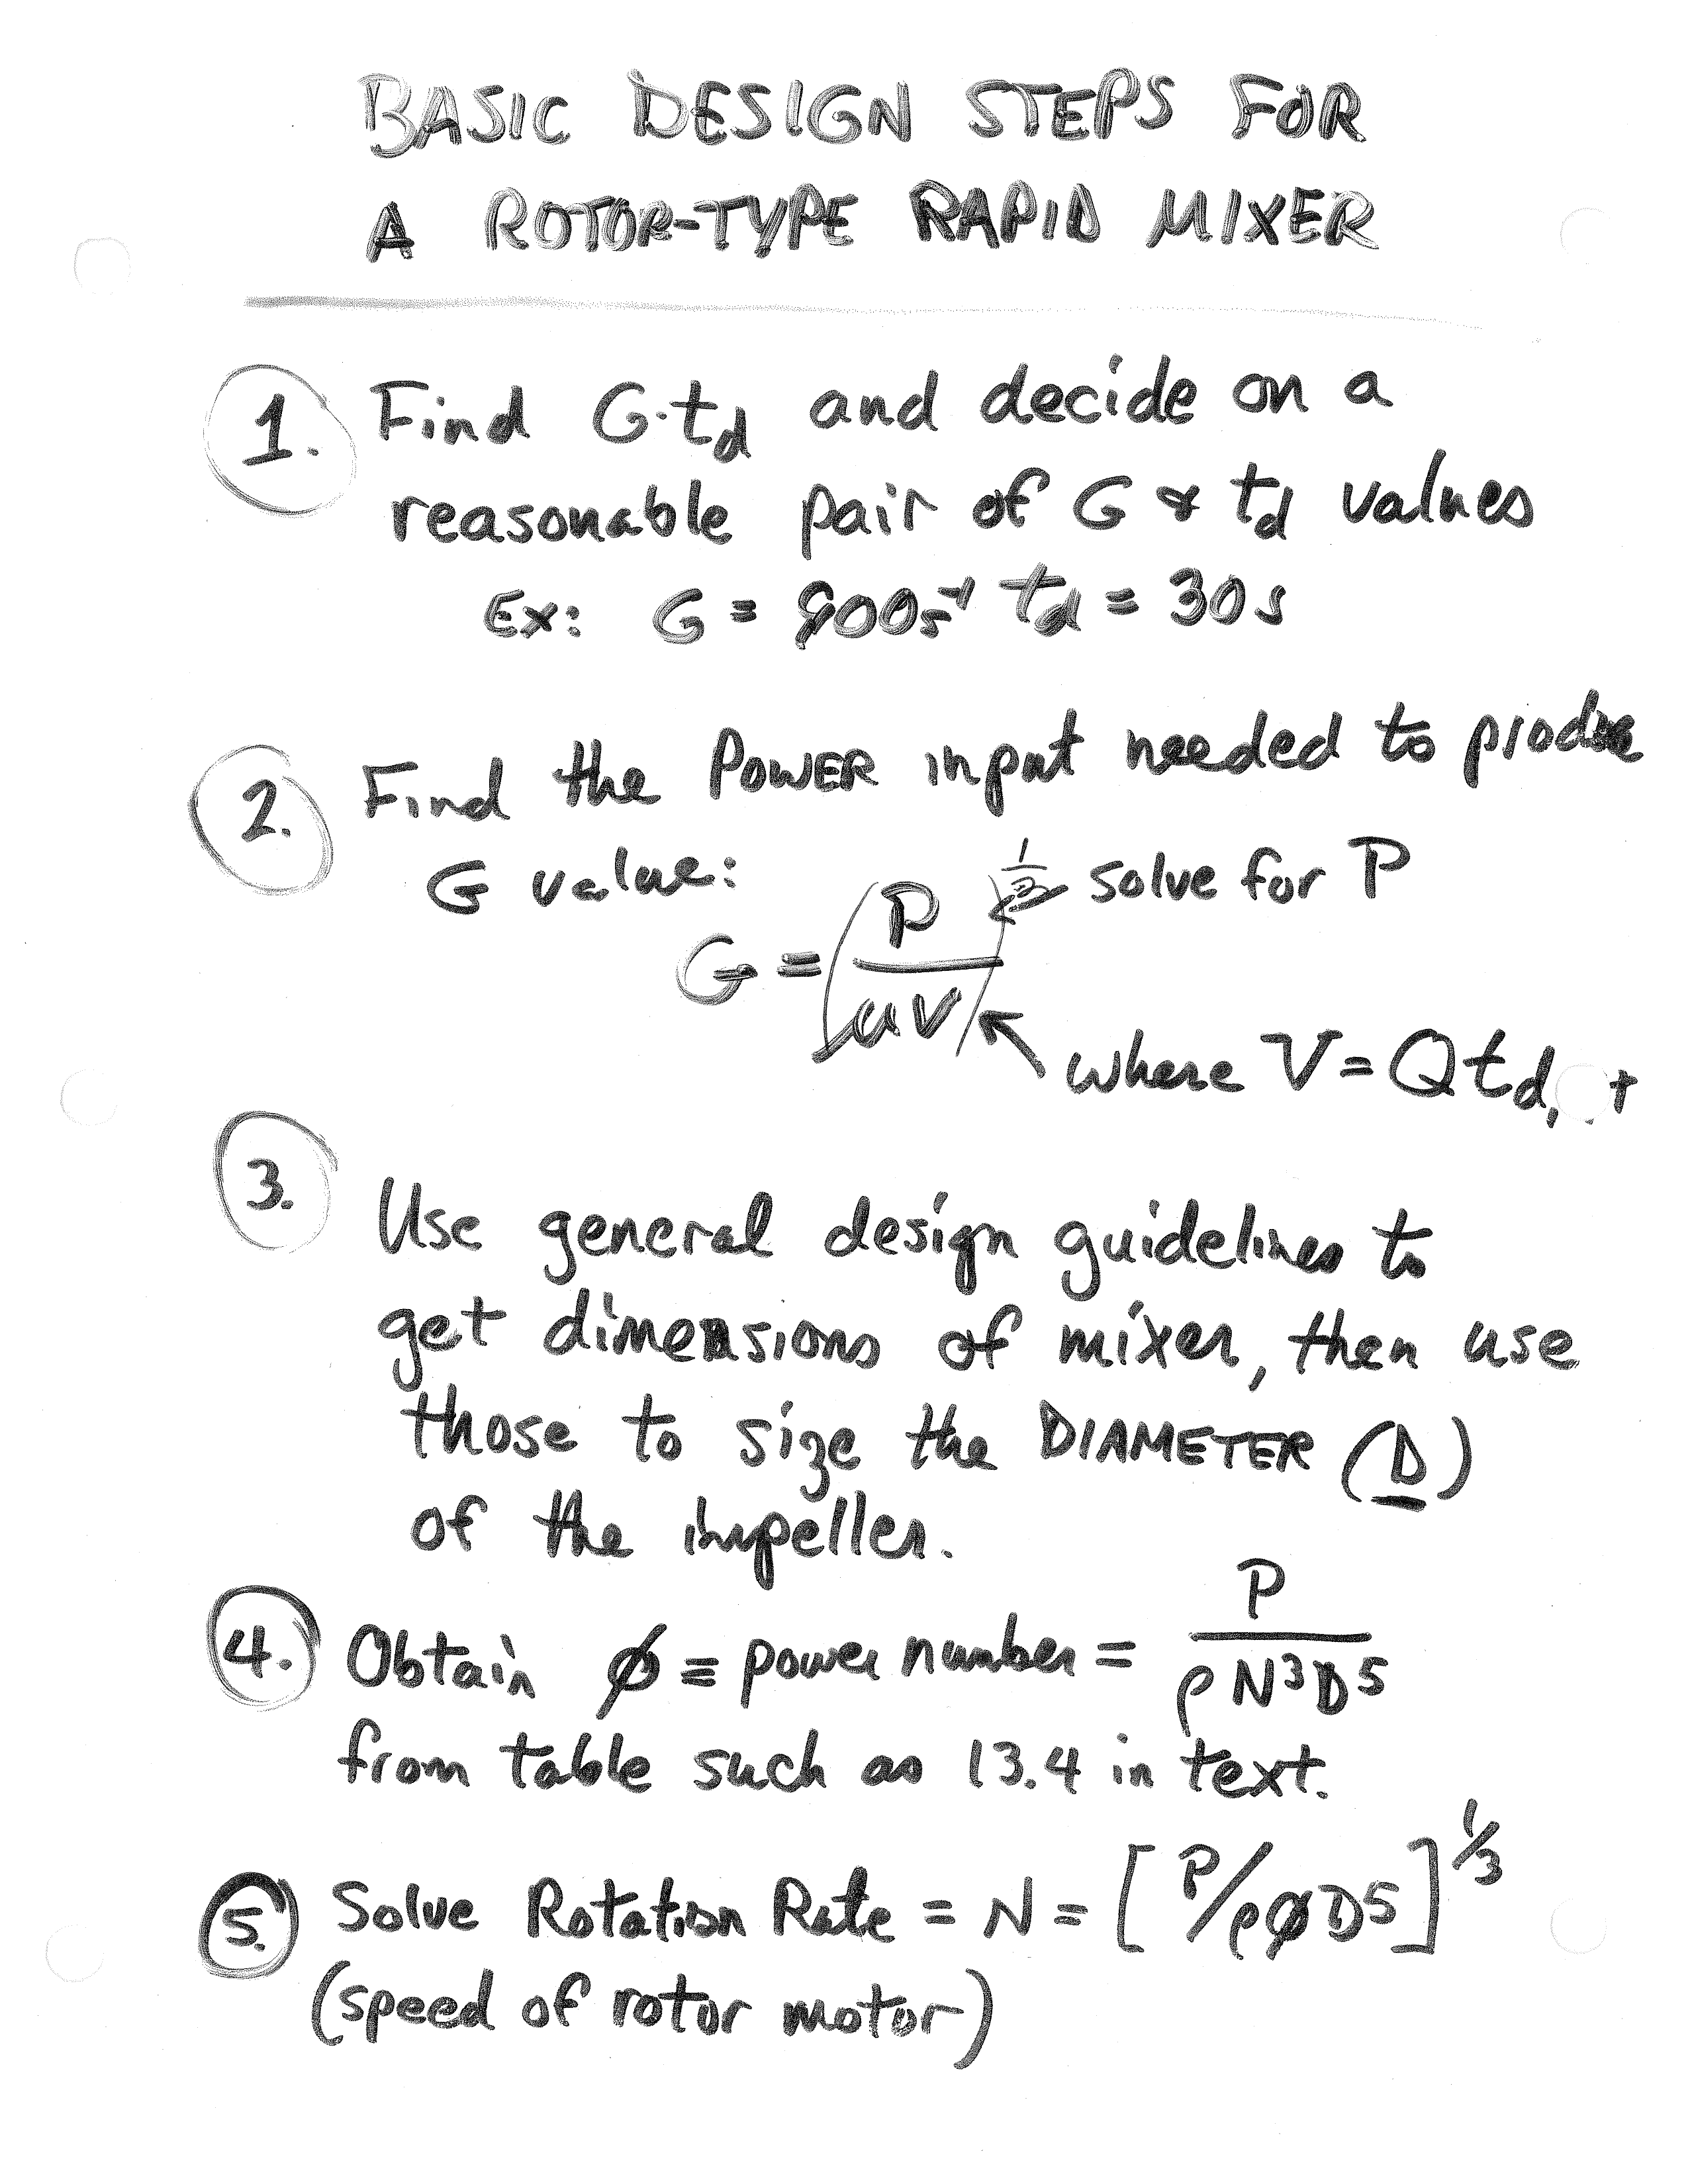 BASIC DESIGN STEPS FOR
A ROTOR-TYPE RAPID MIXER
1. Find G·td and decide on a
reasonable pair of G & td values
Ex: G = 900s⁻¹ td = 30s
2. Find the POWER input needed to produce
G value:
G = (P/μV)^1/2 ← solve for P
where V = Qtd,
3. Use general design guidelines to
get dimensions of mixer, then use
those to size the DIAMETER (D)
of the impeller.
4. Obtain ϕ ≡ power number = P/ρN³D⁵
from table such as 13.4 in text.
5. Solve Rotation Rate = N = [P/ρϕD5]^1/3
(speed of rotor motor)